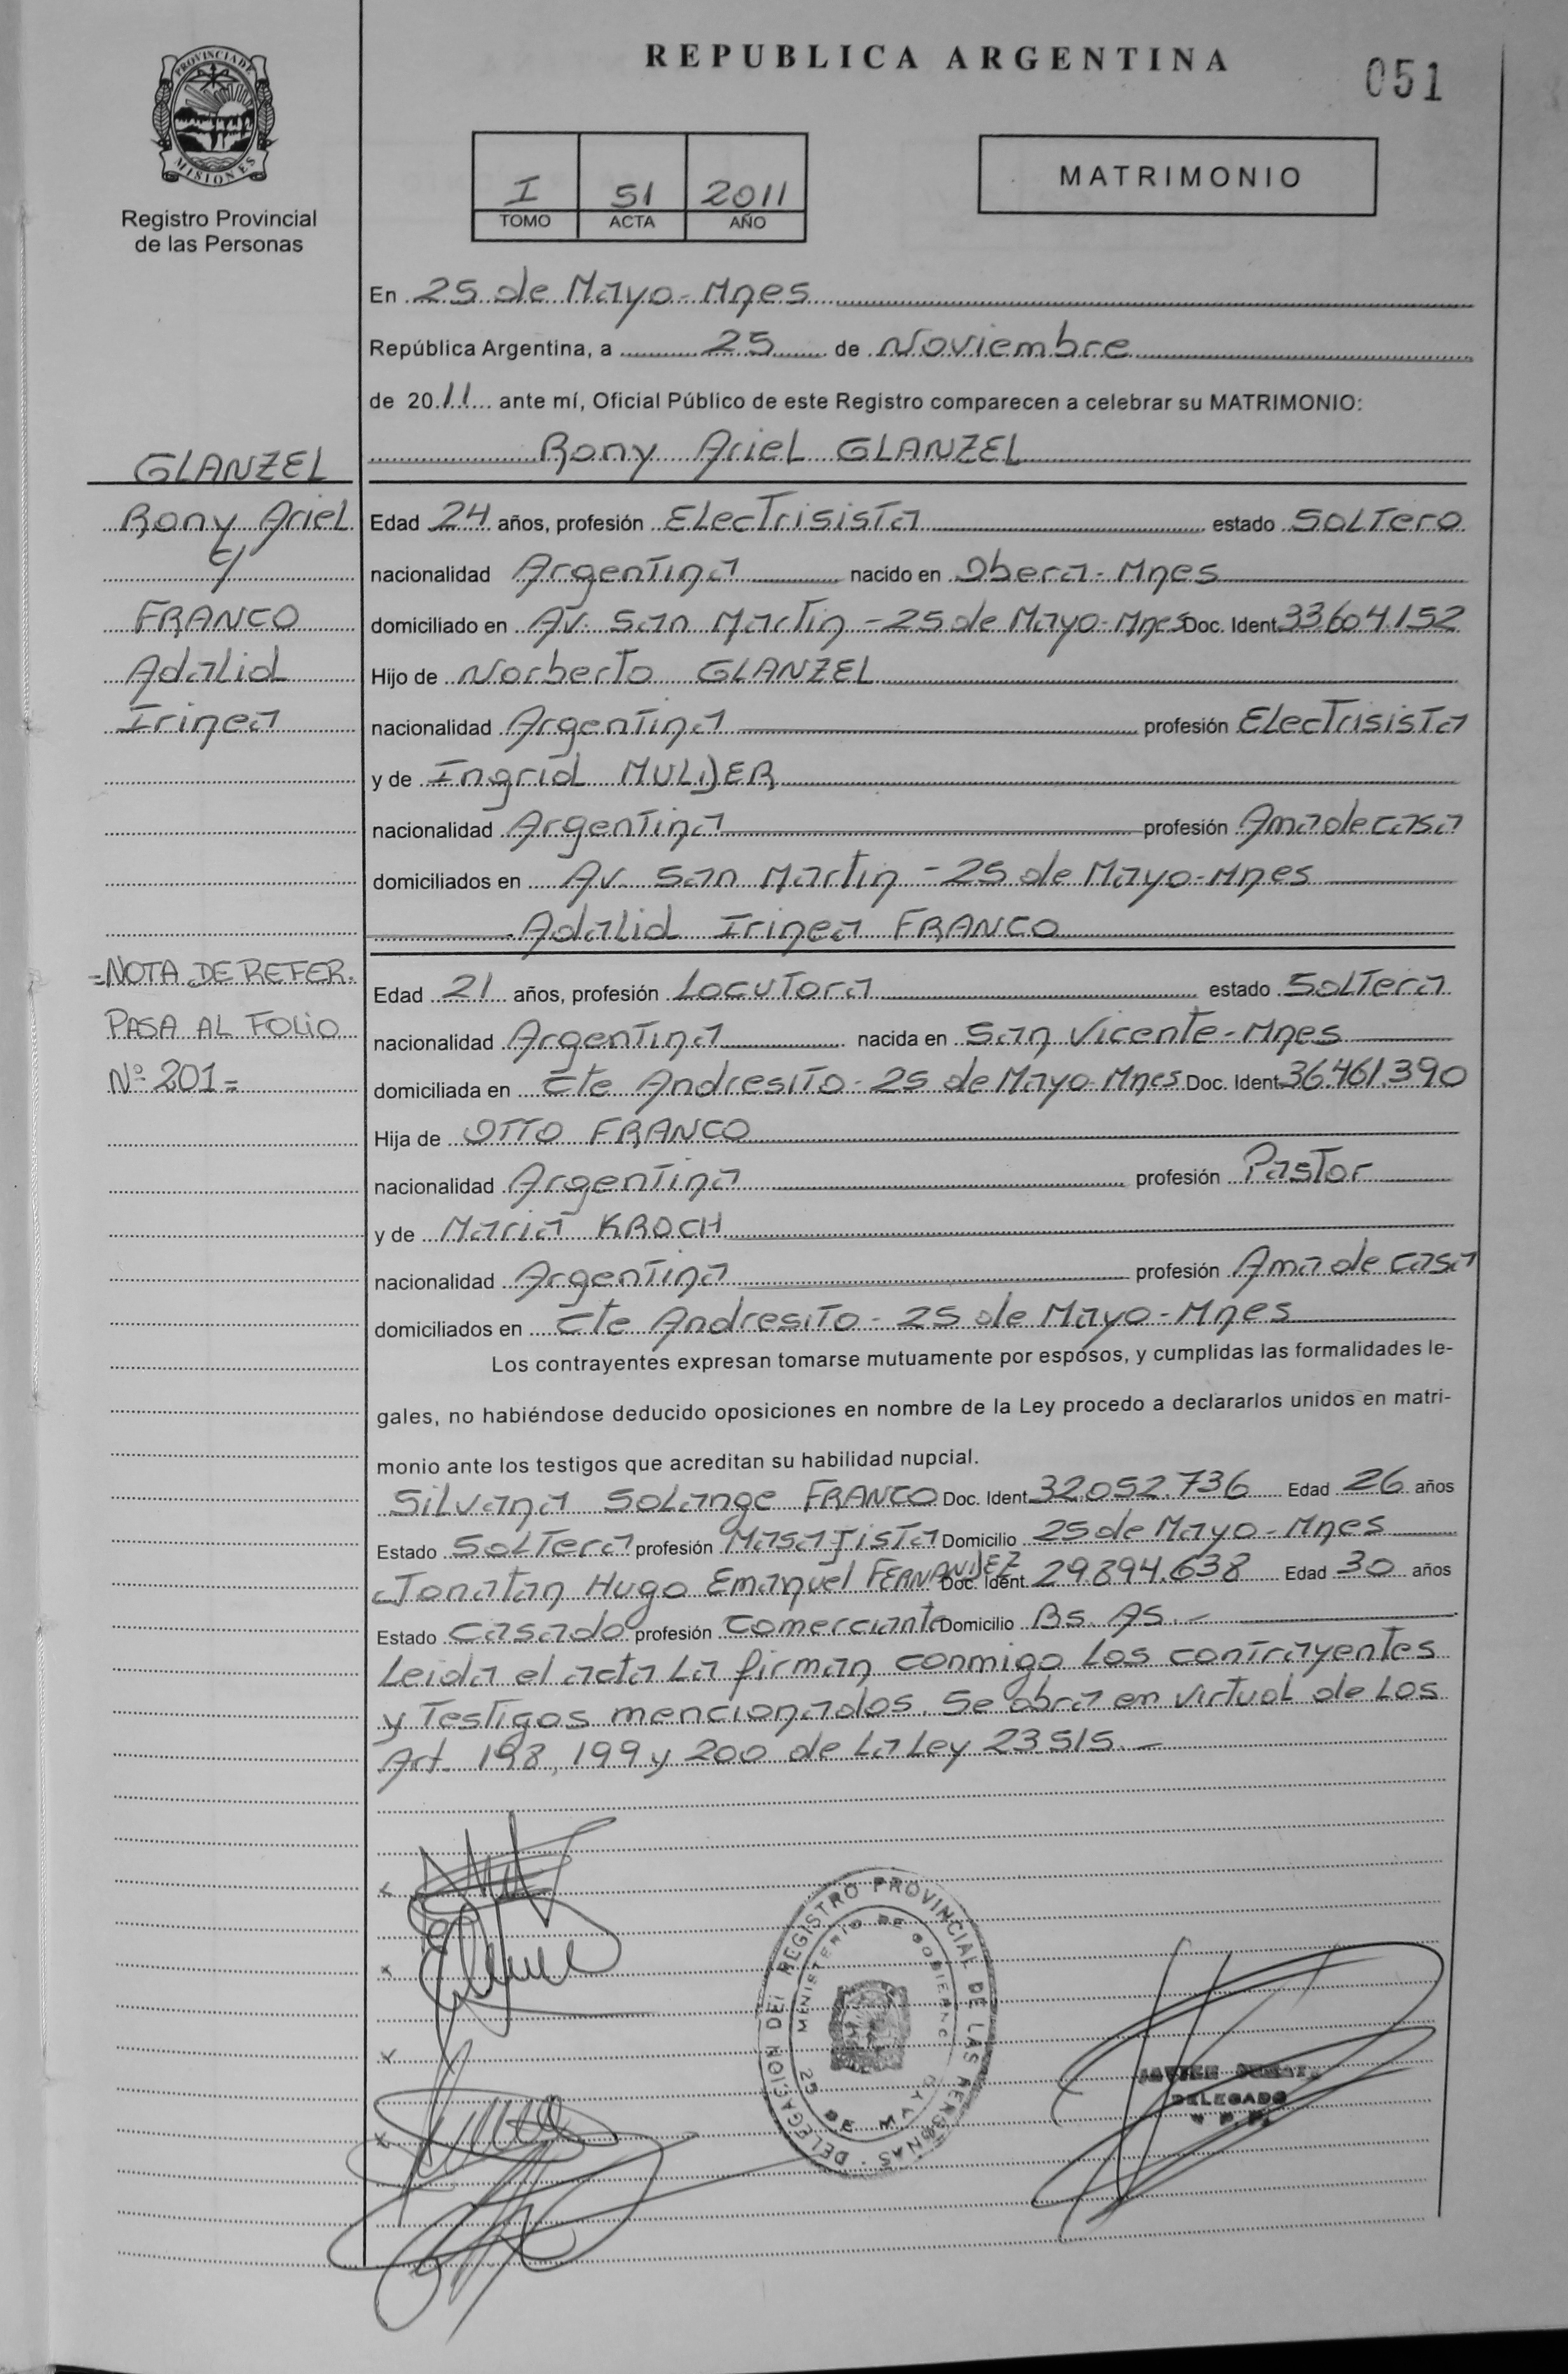 PROVINCIA DE
MISIONES
Registro Provincial
de las Personas
REPUBLICA ARGENTINA
051
I 51 2011
TOMO ACTA AÑO
MATRIMONIO
En 25 de Mayo-Mnes
República Argentina, a 25 de Noviembre
de 2011 ante mí, Oficial Público de este Registro comparecen a celebrar su MATRIMONIO:
Rony Ariel GLANZEL
GLANZEL
Rony Ariel
y
FRANCO
Adalid
Irinea
Edad 24 años, profesión Electrisista estado Soltero
nacionalidad Argentina nacido en Obera-Mnes
domiciliado en Av. San Martin - 25 de Mayo-Mnes Doc. Ident. 33.604.152
Hijo de Norberto GLANZEL
nacionalidad Argentina profesión Electrisista
y de Ingrid MULDER
nacionalidad Argentina profesión Ama de casa
domiciliados en Av. San Martin - 25 de Mayo-Mnes
Adalid Irinea FRANCO
=NOTA DE REFER.
PASA AL FOLIO
Nº 201=
Edad 21 años, profesión Locutora estado Soltera
nacionalidad Argentina nacida en San Vicente-Mnes
domiciliada en Cte Andresito - 25 de Mayo-Mnes Doc. Ident. 36.461.390
Hija de OTTO FRANCO
nacionalidad Argentina profesión Pastor
y de Maria KROCH
nacionalidad Argentina profesión Ama de casa
domiciliados en Cte Andresito - 25 de Mayo-Mnes
Los contrayentes expresan tomarse mutuamente por esposos, y cumplidas las formalidades le-
gales, no habiéndose deducido oposiciones en nombre de la Ley procedo a declararlos unidos en matri-
monio ante los testigos que acreditan su habilidad nupcial.
Silvana Solange FRANCO Doc. Ident. 32.052.736 Edad 26 años
Estado Soltera profesión Masajista Domicilio 25 de Mayo-Mnes
Jonatan Hugo Emanuel FERNANDEZ Doc. Ident. 29.894.638 Edad 30 años
Estado Casado profesión Comerciante Domicilio Bs. As.-
Leida el acta la firman conmigo los contrayentes
y Testigos mencionados. Se obra en virtud de los
Art. 198, 199 y 200 de la Ley 23515.-
DELEGACION DEL REGISTRO PROVINCIAL DE LAS PERSONAS
MINISTERIO DE GOBIERNO
25 DE MAYO
DELEGADO